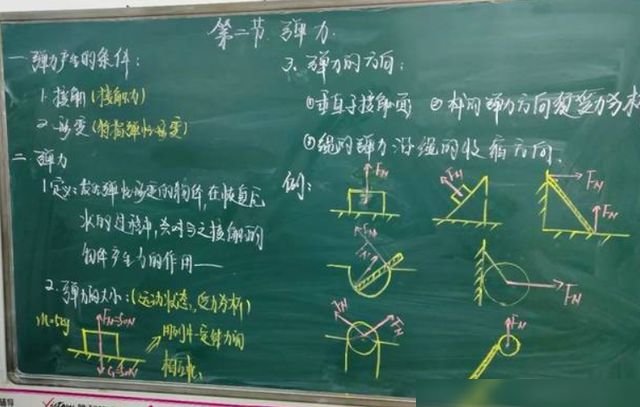 第二节 弹力
一 弹力产生的条件:
1. 接触(接触力)
2. 形变(特指弹性形变)
二 弹力
1. 定义:发生弹性形变的物体,在恢复原
状的过程中,会对与之接触的
物体产生力的作用
2. 弹力的大小:(运动状态、受力分析)
m=5kg
F_N=50N
G=50N
相互
3. 弹力的方向:
①垂直于接触面 ②杆的弹力方向须受力分析
③绳的弹力沿绳的收缩方向.
例:
F_N
F_N
F_N
F_N
F_N
F_N
F_N
F_N
F_N